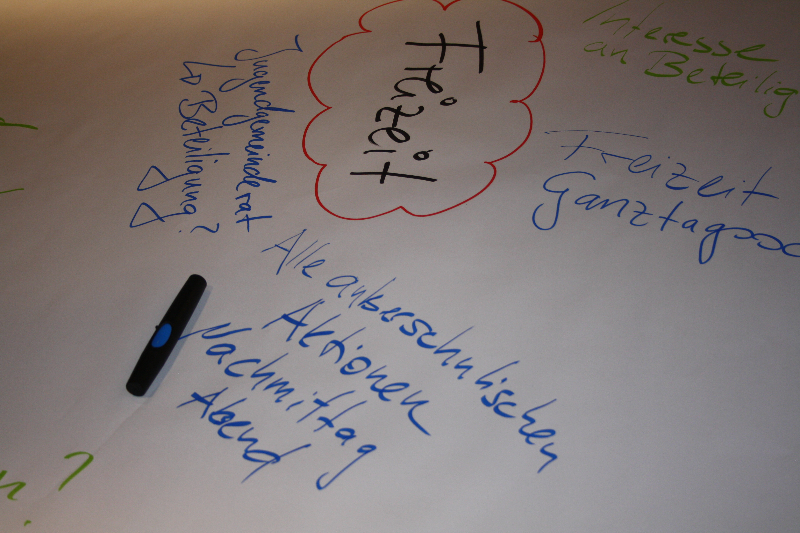 Freizeit
Jugendgemeinderat
↳ Beteiligung?
Interesse
an Beteilig
Freizeit
Ganztagssc
Alle außerschulischen
Aktionen
Nachmittag
Abend
n.?